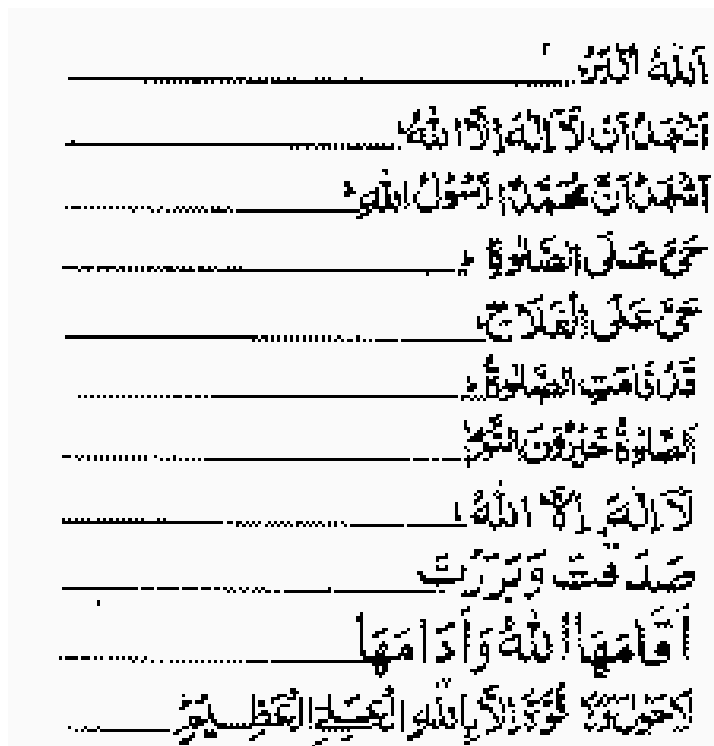 اَللهُ اَكْبَرُ
اَشْهَدُ اَنْ لَّا اِلٰهَ اِلَّا اللهُ
اَشْهَدُ اَنَّ مُحَمَّدًا رَّسُوْلُ اللهِ
حَیَّ عَلَی الصَّلٰوةِ
حَیَّ عَلَی الْفَلَاحِ
قَدْ قَامَتِ الصَّلٰوةُ
اَلصَّلٰوةُ خَیْرٌ مِّنَ النَّوْمِ
لَا اِلٰهَ اِلَّا اللهُ
صَدَقْتَ وَبَرَرْتَ
اَقَامَهَا اللهُ وَاَدَامَهَا
لَاحَوْلَ وَلَا قُوَّةَ اِلَّا بِاللهِ الْعَلِیِّ الْعَظِیْمِ